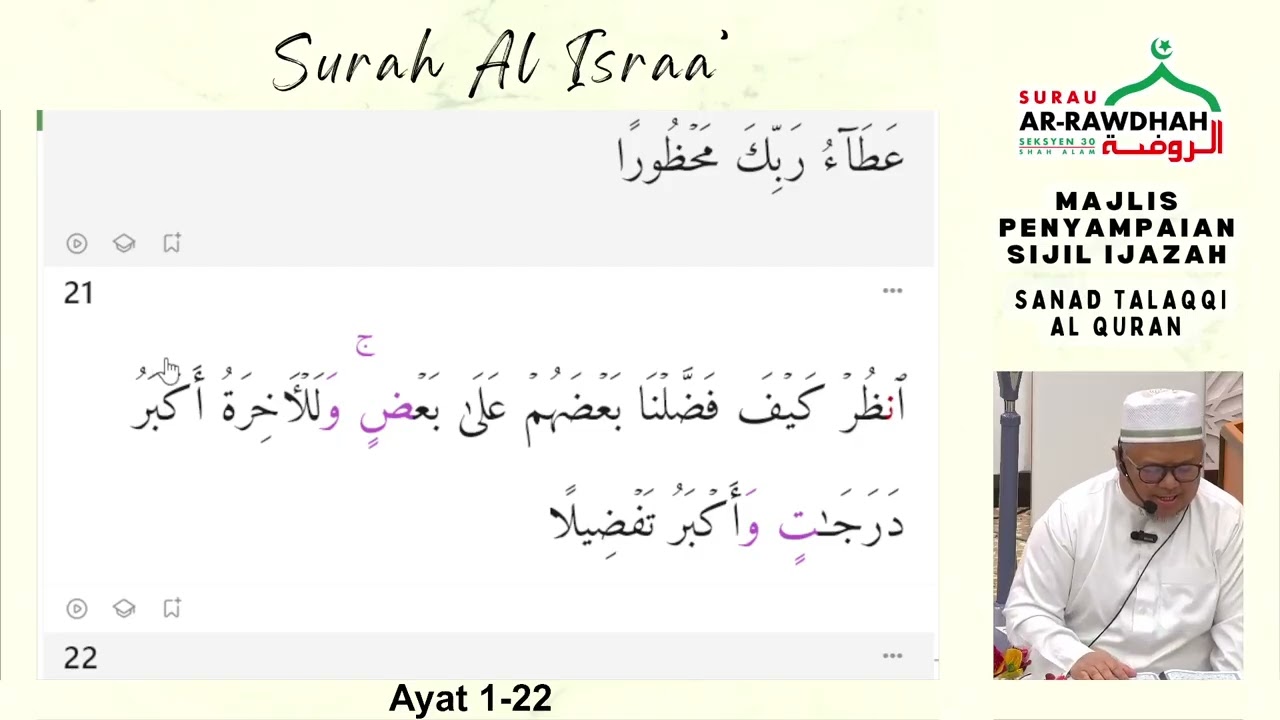 Surah Al Israa'
عَطَآءُ رَبِّكَ مَحْظُورًا
21
ٱنظُرْ كَيْفَ فَضَّلْنَا بَعْضَهُمْ عَلَىٰ بَعْضٍ ۚ وَلَلْـَٔاخِرَةُ أَكْبَرُ
دَرَجَـٰتٍ وَأَكْبَرُ تَفْضِيلًا
22
Ayat 1-22
SURAU
AR-RAWDHAH
SEKSYEN 30
SHAH ALAM
الروضة
MAJLIS
PENYAMPAIAN
SIJIL IJAZAH
SANAD TALAQQI
AL QURAN